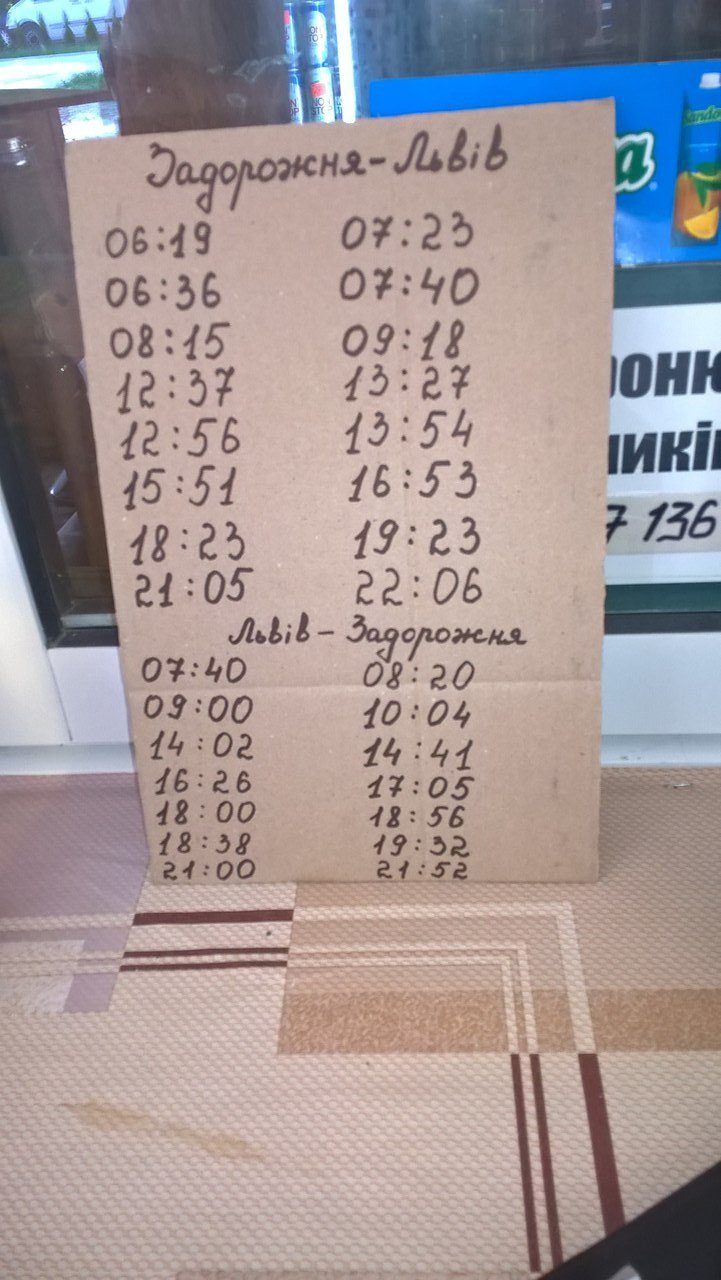 NON
STOP
Sando
a
Задорожня-Львів
06:19 07:23
06:36 07:40
08:15 09:18
12:37 13:27
12:56 13:54
15:51 16:53
18:23 19:23
21:05 22:06
Львів - Задорожня
07:40 08:20
09:00 10:04
14:02 14:41
16:26 17:05
18:00 18:56
18:38 19:32
21:00 21:52
7 136